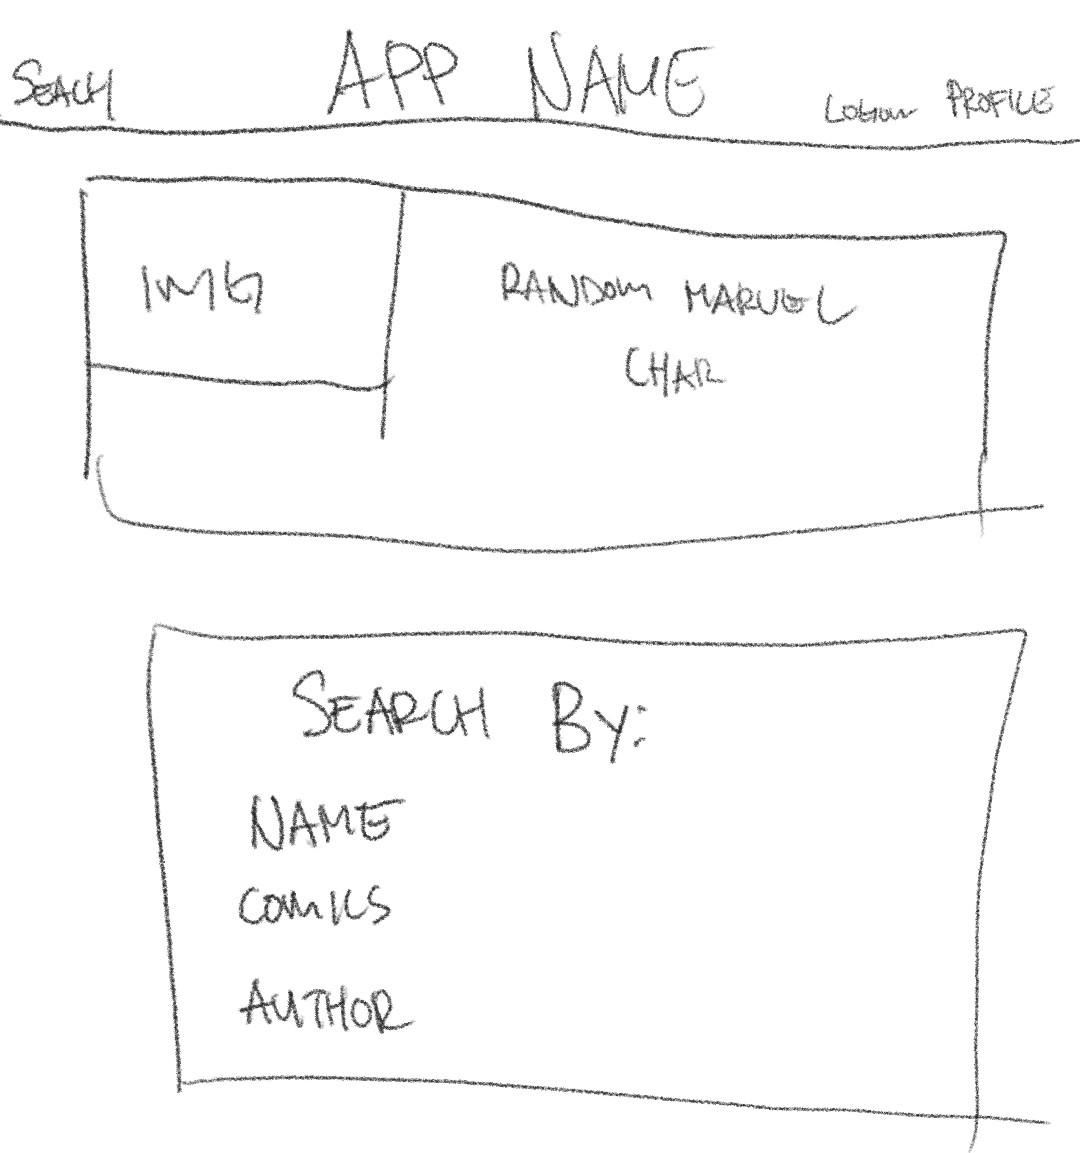 SEACH APP NAME LOGIN PROFILE
IMG
RANDOM MARVEL
CHAR
SEARCH BY:
NAME
COMICS
AUTHOR